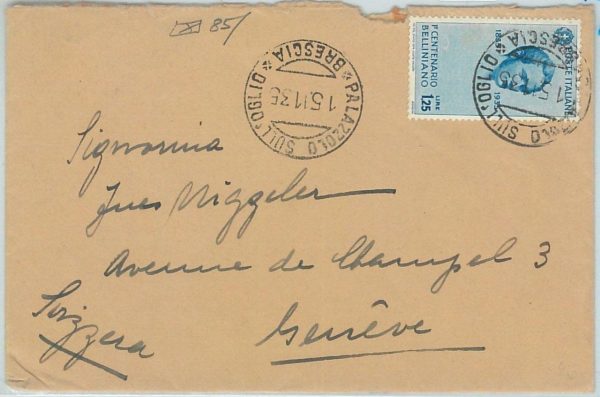 85/
PALAZZOLO SULL'OGLIO
BRESCIA
15.11.35
POSTE ITALIANE
I° CENTENARIO
BELLINIANO
LIRE
1,25
1935
PALAZZOLO SULL'OGLIO
BRESCIA
Signorina
Ines Niggeler
Avenue de Champel 3
Genêve
Svizzera